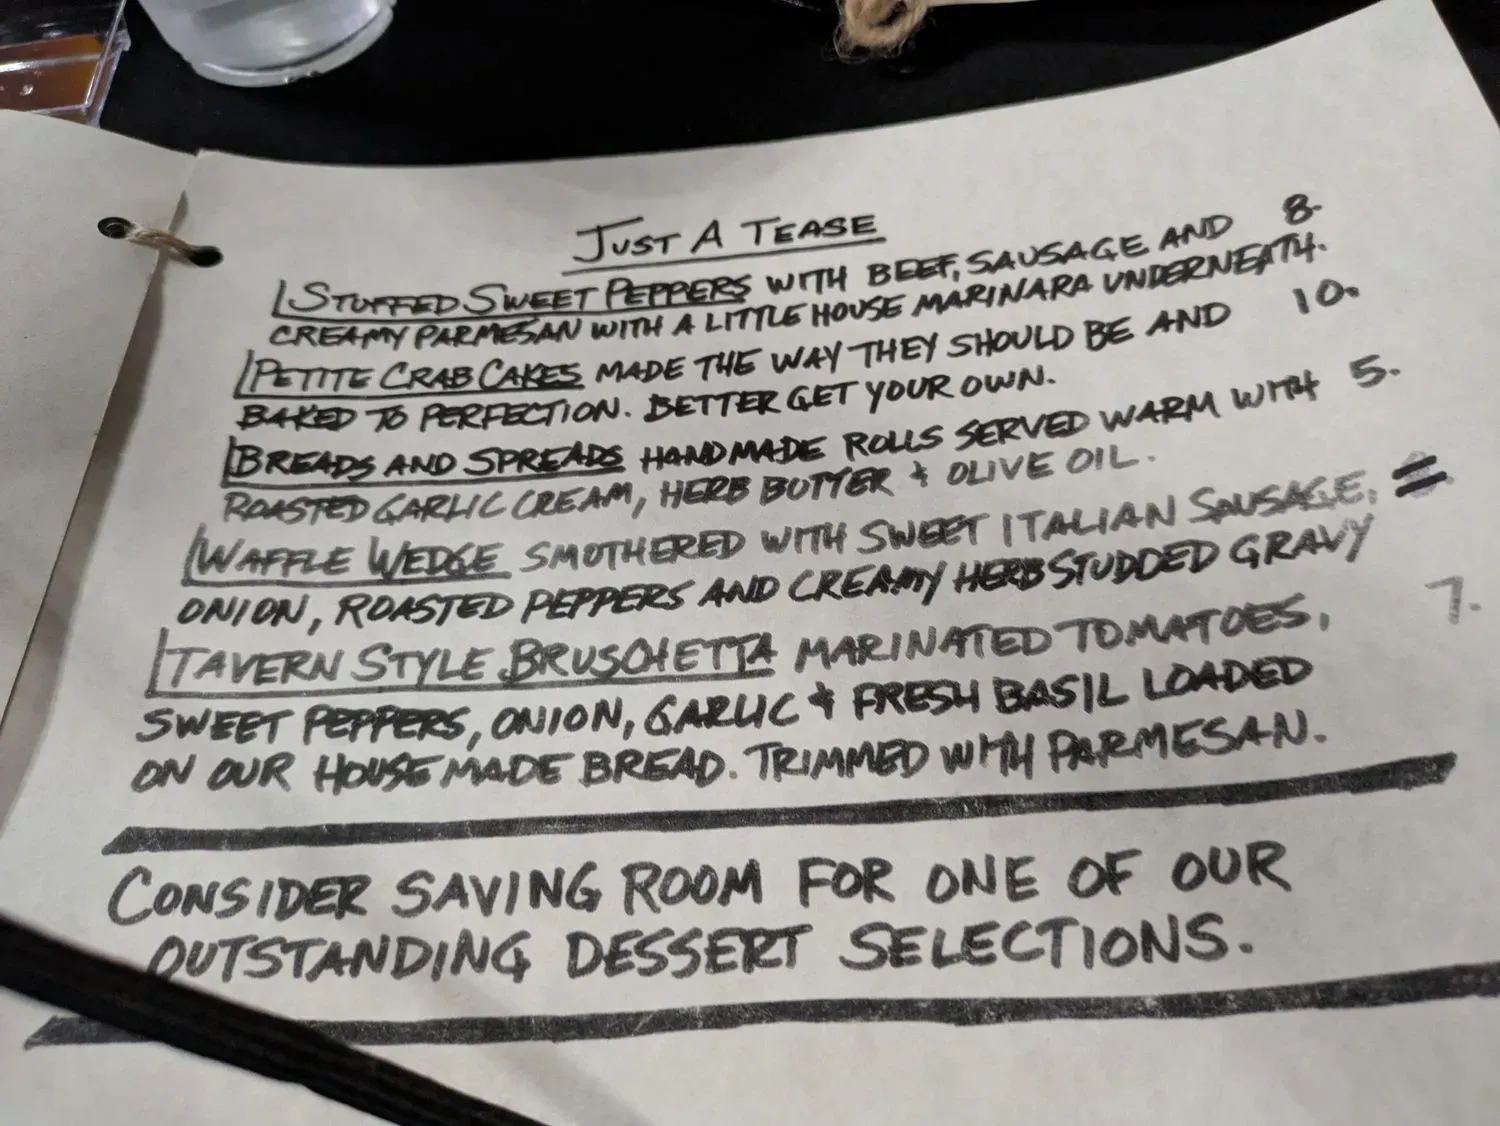 JUST A TEASE
STUFFED SWEET PEPPERS WITH BEEF, SAUSAGE AND 8.
CREAMY PARMESAN WITH A LITTLE HOUSE MARINARA UNDERNEATH.
PETITE CRAB CAKES MADE THE WAY THEY SHOULD BE AND 10.
BAKED TO PERFECTION. BETTER GET YOUR OWN.
BREADS AND SPREADS HANDMADE ROLLS SERVED WARM WITH 5.
ROASTED GARLIC CREAM, HERB BUTTER & OLIVE OIL.
WAFFLE WEDGE SMOTHERED WITH SWEET ITALIAN SAUSAGE,
ONION, ROASTED PEPPERS AND CREAMY HERB STUDDED GRAVY
TAVERN STYLE BRUSCHETTA MARINATED TOMATOES, 7.
SWEET PEPPERS, ONION, GARLIC & FRESH BASIL LOADED
ON OUR HOUSEMADE BREAD. TRIMMED WITH PARMESAN.
CONSIDER SAVING ROOM FOR ONE OF OUR
OUTSTANDING DESSERT SELECTIONS.